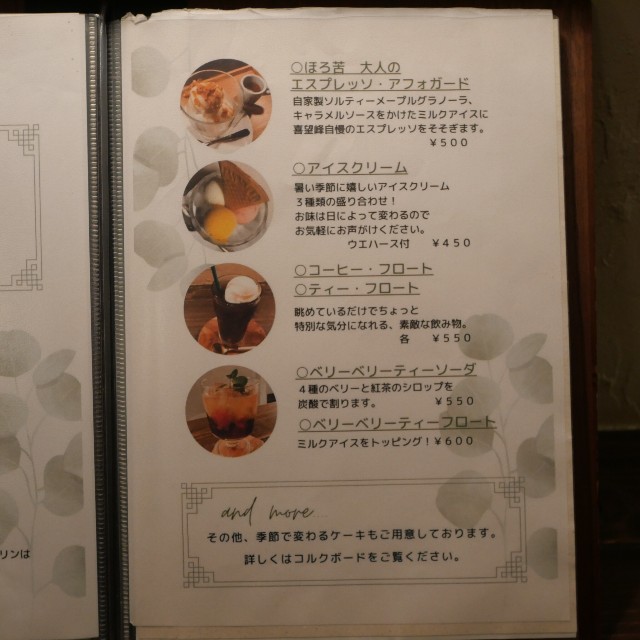 ○ほろ苦　大人の
エスプレッソ・アフォガード
自家製ソルティーメープルグラノーラ、
キャラメルソースをかけたミルクアイスに
喜望峰自慢のエスプレッソをそそぎます。
￥５００
○アイスクリーム
暑い季節に嬉しいアイスクリーム
３種類の盛り合わせ！
お味は日によって変わるので
お気軽にお声がけください。
ウエハース付　￥４５０
○コーヒー・フロート
○ティー・フロート
眺めているだけでちょっと
特別な気分になれる、素敵な飲み物。
各　￥５５０
○ベリーベリーティーソーダ
４種のベリーと紅茶のシロップを
炭酸で割ります。　￥５５０
○ベリーベリーティーフロート
ミルクアイスをトッピング！￥６００
and more
その他、季節で変わるケーキもご用意しております。
詳しくはコルクボードをご覧ください。
リンは